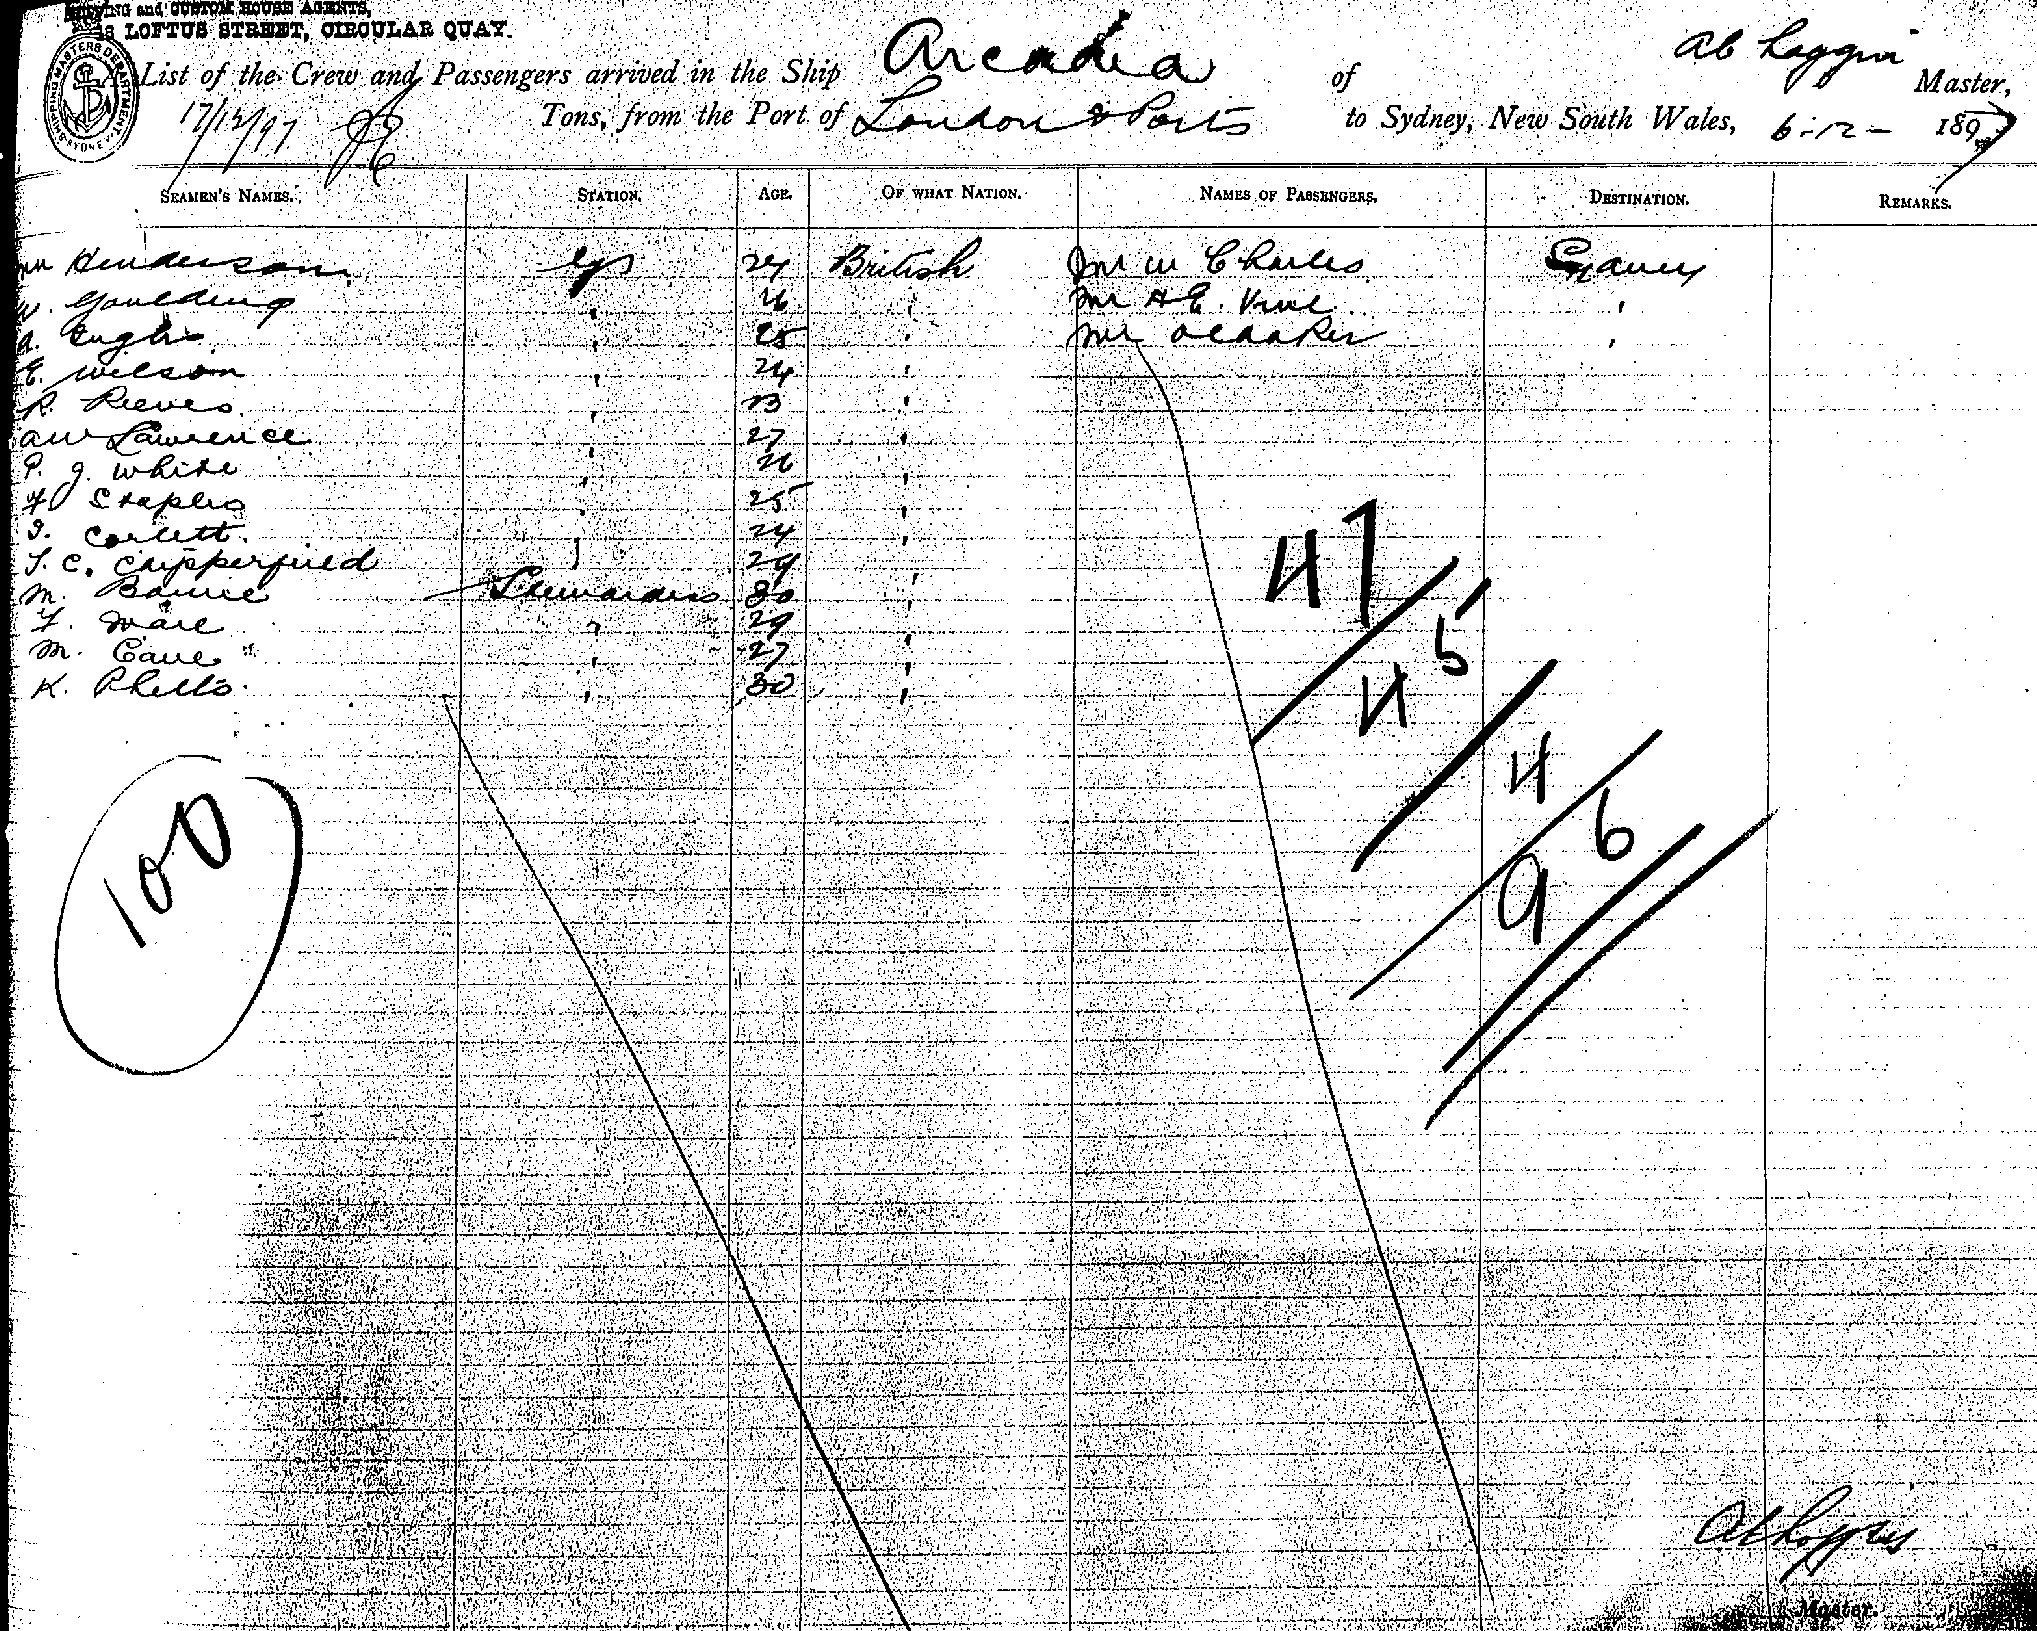 SHIPPING and CUSTOM HOUSE AGENTS,
LOFTUS STREET, CIRCULAR QUAY.
SHIPPING MASTERS DEPARTMENT. SYDNEY
A List of the Crew and Passengers arrived in the Ship Arcadia of Master,
17/12/97 Tons, from the Port of London & Ports to Sydney, New South Wales, 6-12- 1897
SEAMEN'S NAMES. STATION. AGE. OF WHAT NATION. NAMES OF PASSENGERS. DESTINATION. REMARKS.
Henderson 24 British Mr W Charles Sydney
W. Goulding " 26 " Mr H E. Vine "
A. " 25 " Mr "
E. Wilson " 24 "
R. Reeves " 23 "
AW Lawrence " 27 "
P. J. White " 26 "
F Staples " 25 "
Corlett. " 24 "
T. C. Chipperfield " 29 "
M. Stewardess 30 "
F. " 29 "
M. Cave " 27 "
K. " 30 "
47
45
4
96
100
Master.